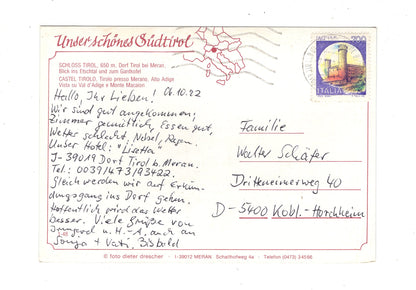 Unser schönes Südtirol
SCHLOSS TIROL, 650 m, Dorf Tirol bei Meran,
Blick ins Etschtal und zum Gantkofel
CASTEL TIROLO, Tirolo presso Merano, Alto Adige
Vista su Val d'Adige e Monte Macaion
Hallo, Ihr Lieben! 06.10.22
Wir sind gut angekommen,
Zimmer gemütlich, Essen gut,
Wetter schlecht, Nebel, Regen.
Unser Hotel: "Lisetta"
J-39019 Dorf Tirol b. Meran.
Tel.: 0039/473/93422.
Gleich werden wir auf Erkun-
dungsgang ins Dorf gehen.
Hoffentlich wird das Wetter
besser. Viele Grüße von
Irmgard u. H.-A., auch an
Sonja + Vati.
200
ITALIA
Familie
Walter Schäfer
Dritteneimerweg 40
D-5400 Kobl.-Horchheim
© foto dieter drescher · I-39012 MERAN, Schafferhofweg 4a · Telefon (0473) 34586